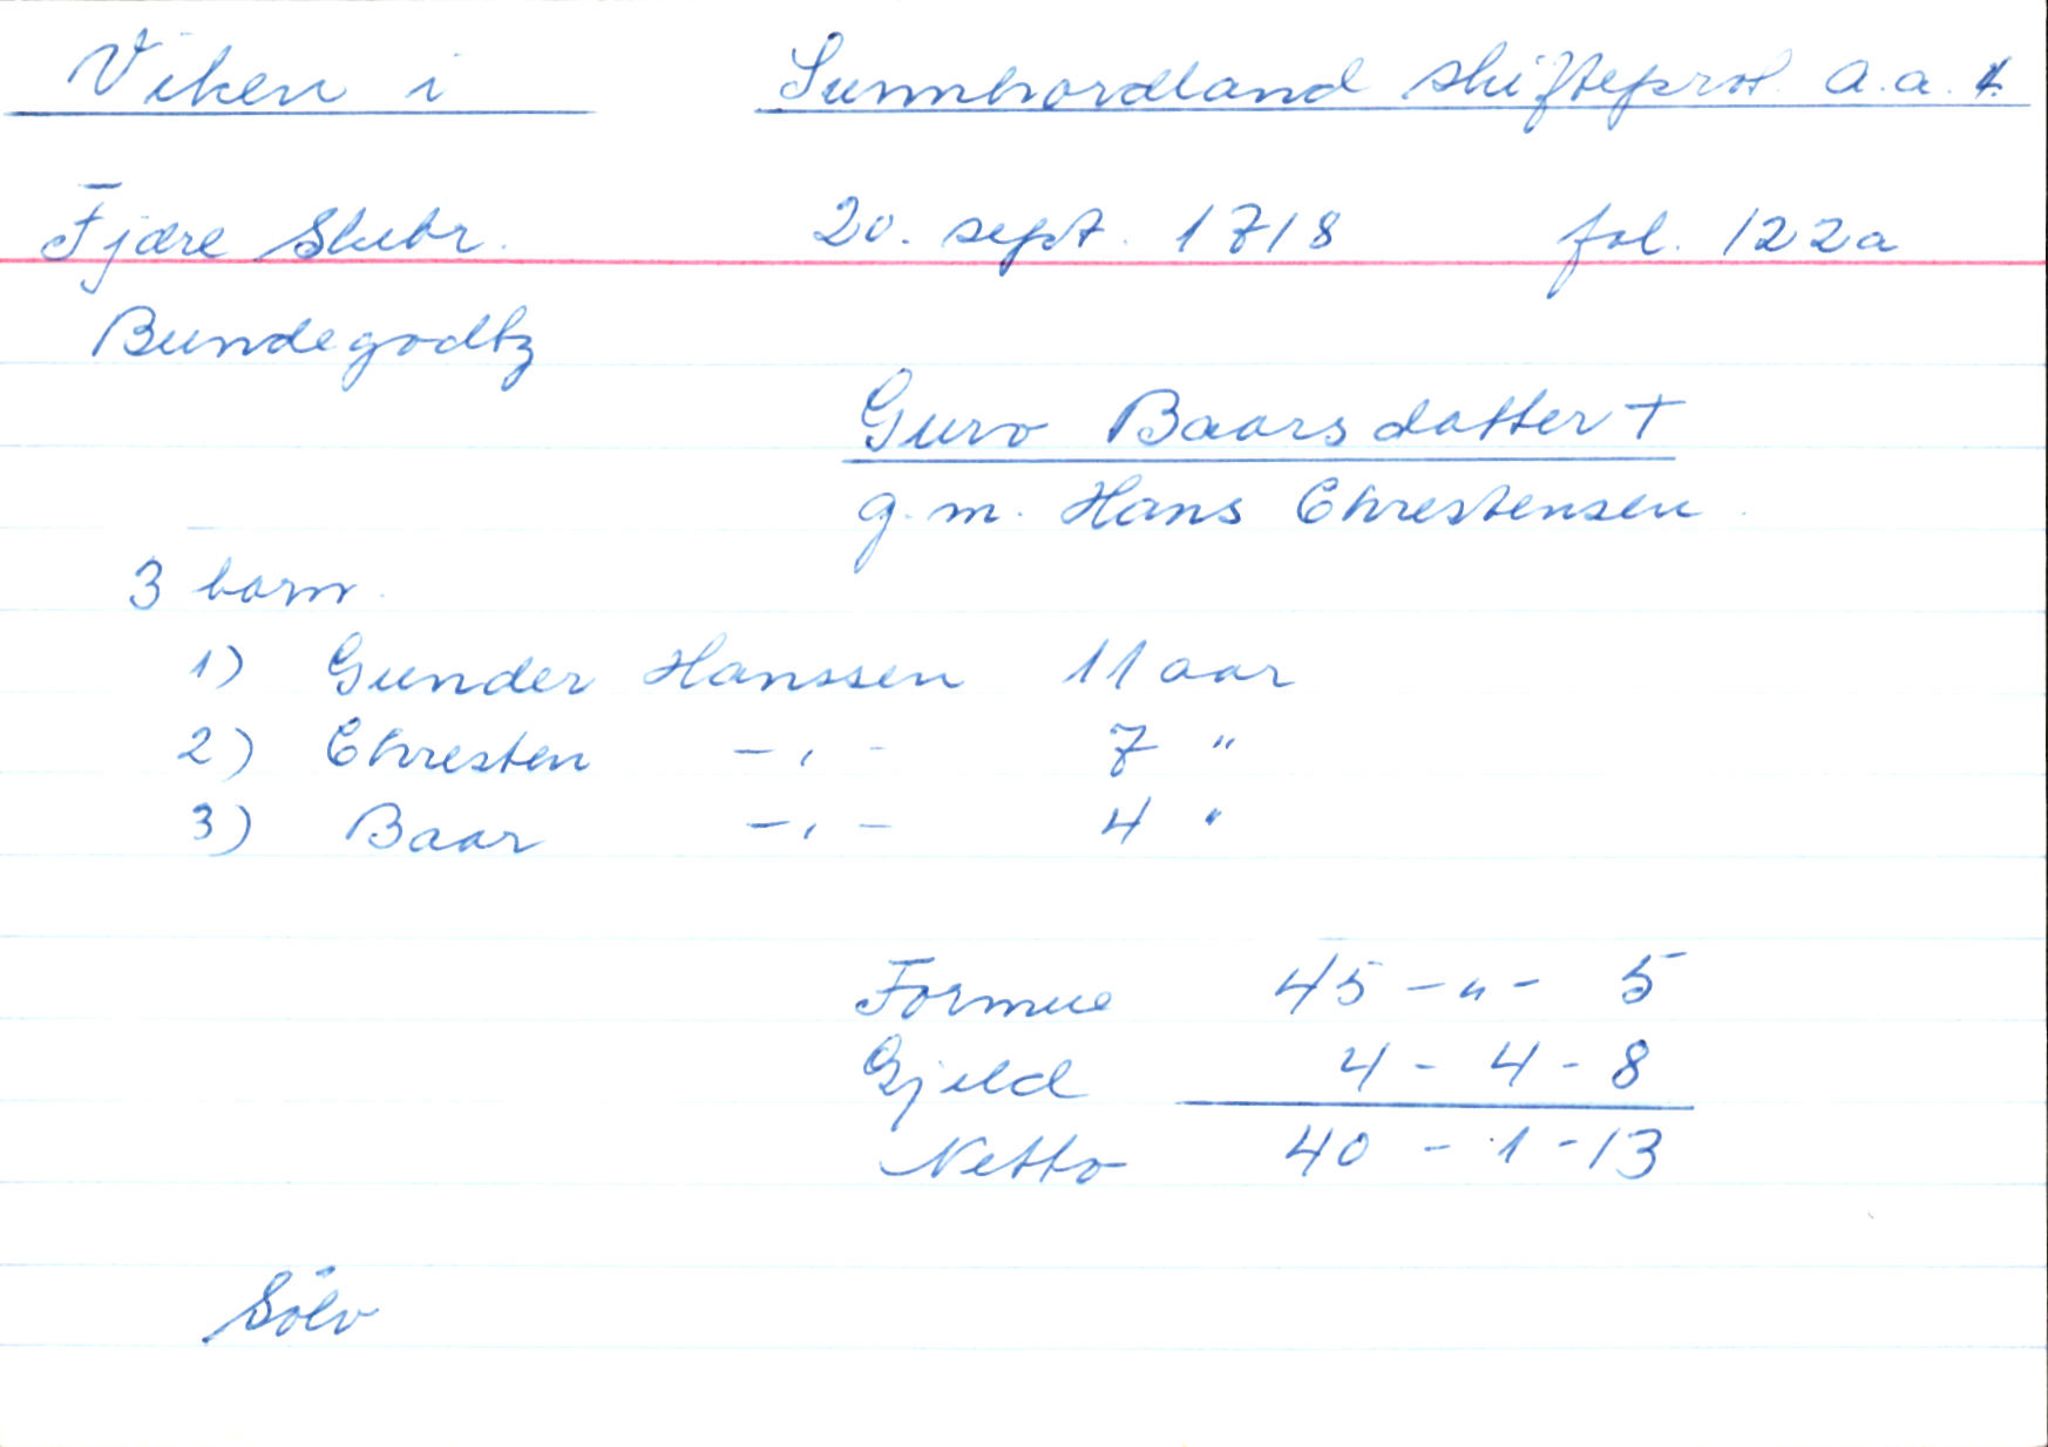 Viken i Sunnhordland skifteprot. a.a.
Fjære Skibr. 20. sept. 1718 fol. 122a
Bundegodtz
Guro Baarsdatter †
g.m. Hans Chrestensen.
3 barn.
1) Gunder Hanssen 11 aar
2) Chresten -„- 7 "
3) Baar -„- 4 "
Formue 45 - " - 5
Gjeld 4 - 4 - 8
Netto 40 - 1 - 13
Sölv